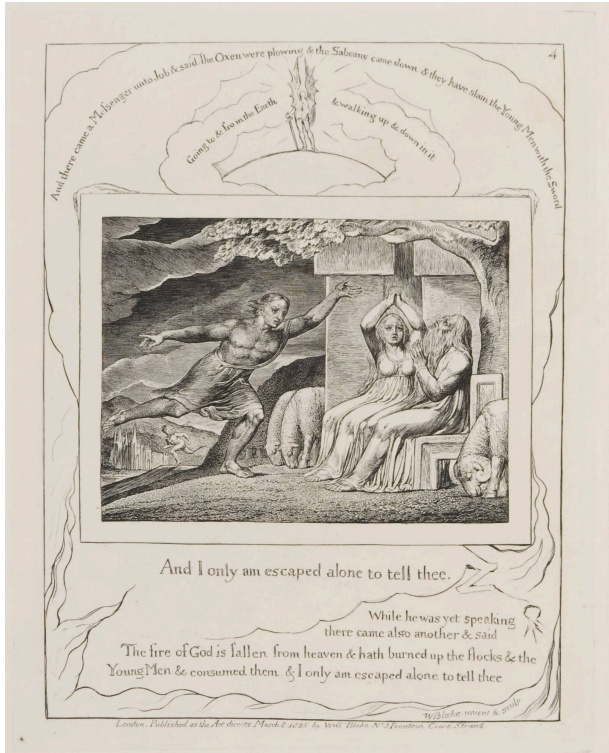 4
And there came a Messenger unto Job & said The Oxen were plowing & the Sabeans came down & they have slain the Young Men with the Sword
Going to & fro in the Earth & walking up & down in it
And I only am escaped alone to tell thee.
While he was yet speaking
there came also another & said
The fire of God is fallen from heaven & hath burned up the flocks & the
Young Men & consumed them & I only am escaped alone to tell thee
WBlake invent & sculp
London. Published as the Act directs March 8 1825 by Will Blake No 3 Fountain Court Strand